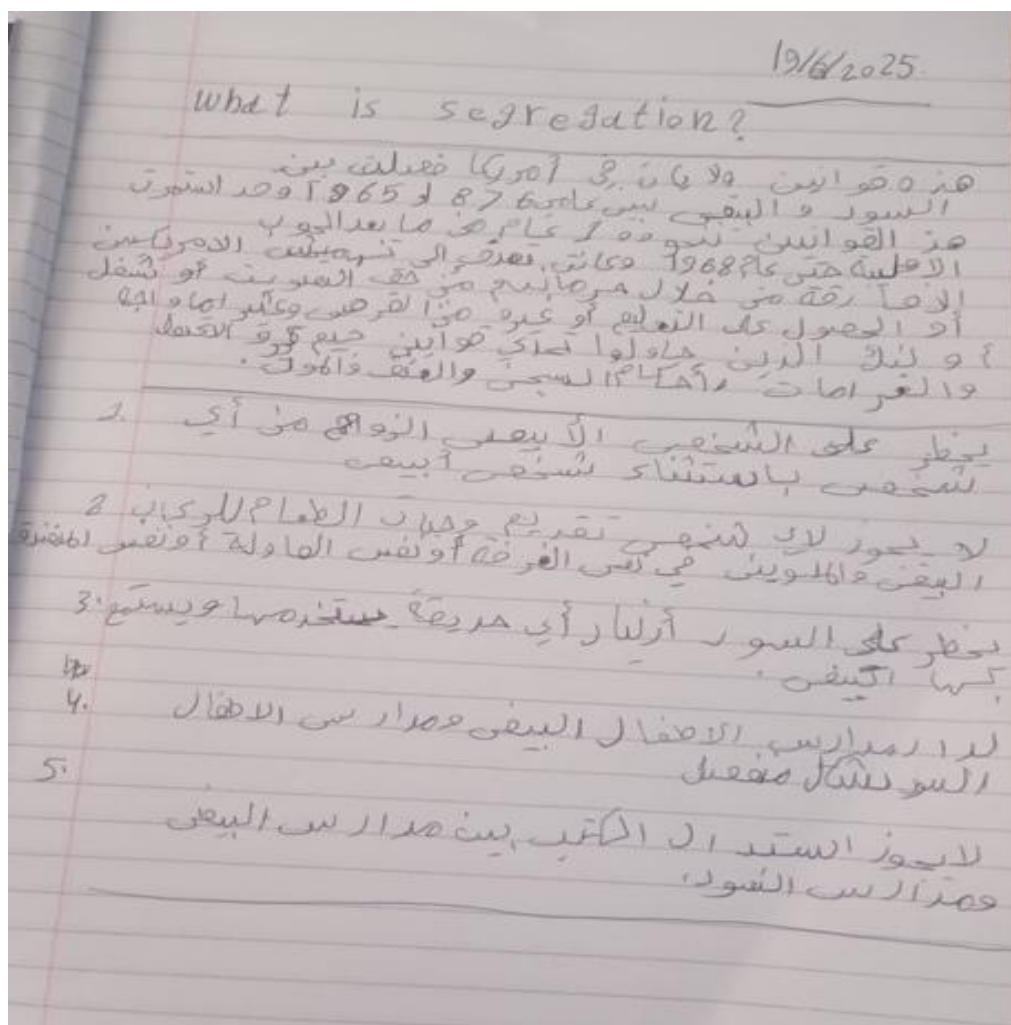 19/6/2025
What is segregation?
هذه قوانين ولايات في أمريكا فصلت بين
السود و البيض بين عامي 1876 و 1965 وقد استمرت
هذ القوانين نحو 100 عام من ما بعد الحرب
الاهلية حتى عام 1968 وكانت تهدف إلى تهميش الامريكيين
الافارقة من خلال حرمانهم من حق التصويت أو شغل
أو الحصول على التعليم أو غيره من الفرص وغالبا ما واجه
أولئك الذين حاولوا تحدي قوانين جيم كرو الاعتقال
والغرامات وأحكام السجن والعنف والموت.
1. يحظر على الشخص الأبيض الزواج من أي
شخص باستثناء شخص أبيض
2 لا يجوز لاي شخص تقديم وجبات الطعام للركاب
البيض والملونين في نفس الغرفة أو نفس الطاولة أو نفس
3. يحظر على السود أرتياد أي حديقة يستخدمها ويستمتع
بها البيض.
4. مدارس الاطفال البيض ومدارس الاطفال
السو بشكل منفصل
5. لا يجوز استبدال الكتب بين مدارس البيض
ومدارس السود.